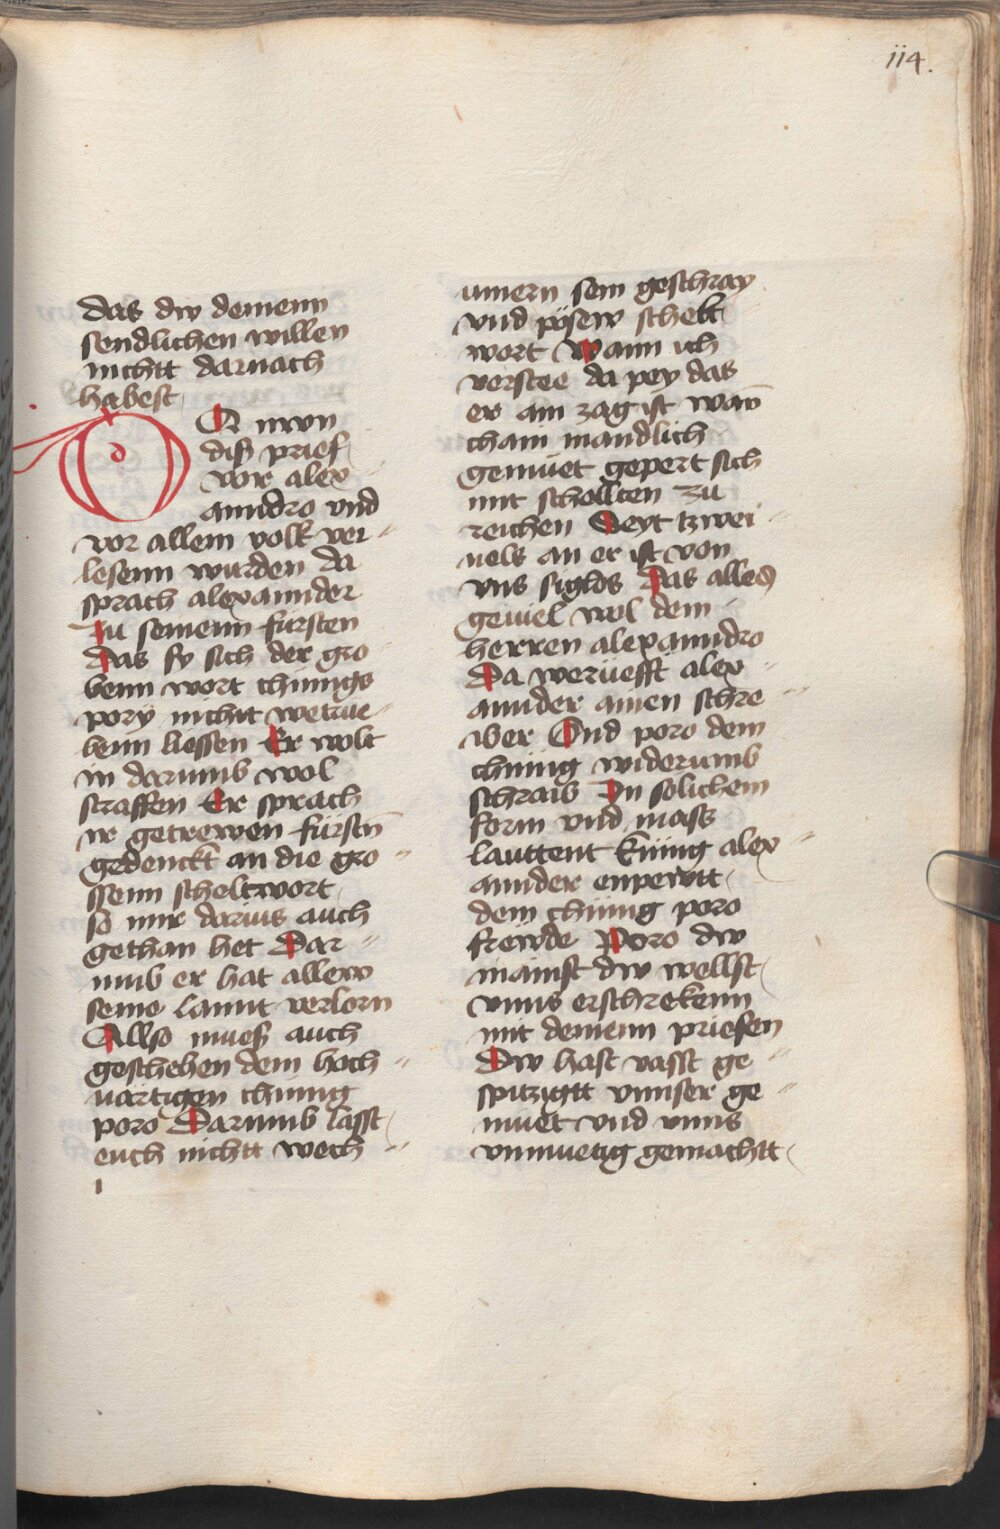 114.
das dw deinenn
sendlichen willen
nichtt darnach
habest
DA nwn
diß prief
vor alex
anndro vnd
vor allem volk ver
lesenn wurden da
sprach alexannder
zu seinenn fürsten
Das sy sich der gro
benn wort chünigs
pory nichtt wetrüe
benn liessen Er wolt
in darumb wol
straffen Er sprach
ir getrewen fürstn̄
gedenckt an die gro
ssenn scheltwort
so mir darius auch
gethan het Dar
umb er hat allew
seine lannt verlorn
Allso mueß auch
geschehen dem hoch
uartigen chünig
poro Darumb lasst
euch nichtt wech
umern sein geschray
vnd pösew schelt
wort Wann ich
verstee da pey das
er ain zag ist wan̄
chain mandlich
gemüet gepert sich
mit schollten zu
reichen Seyt tzwei
uels an er ist von
vns siglos Das alles
geuiel wol dem
herren alexanndro
Da werüefft alex
annder ainen schre
iber Vnd poro dem
chünig widerumb
schraib In solichem
form vnd mass
lauttent Künig alex
annder enpewtt
dem chünig poro
frewde Poro dw
mainst dw wellst
vnns erschrekenn
mit deinenn priefen
Dw hast vasst ge
spitzigtt vnnser ge
müet vnd vnns
vnmuetig gemachtt